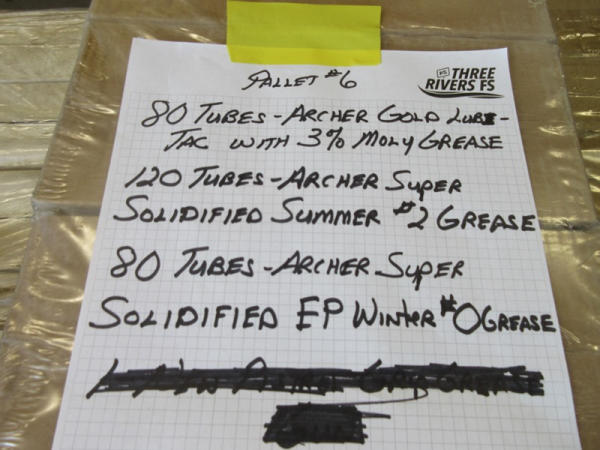 PALLET #6
FS THREE
RIVERS FS
80 TUBES - ARCHER GOLD LUBE-
TAC WITH 3% MOLY GREASE
120 TUBES - ARCHER SUPER
SOLIDIFIED SUMMER #2 GREASE
80 TUBES - ARCHER SUPER
SOLIDIFIED EP WINTER #0 GREASE
GREASE